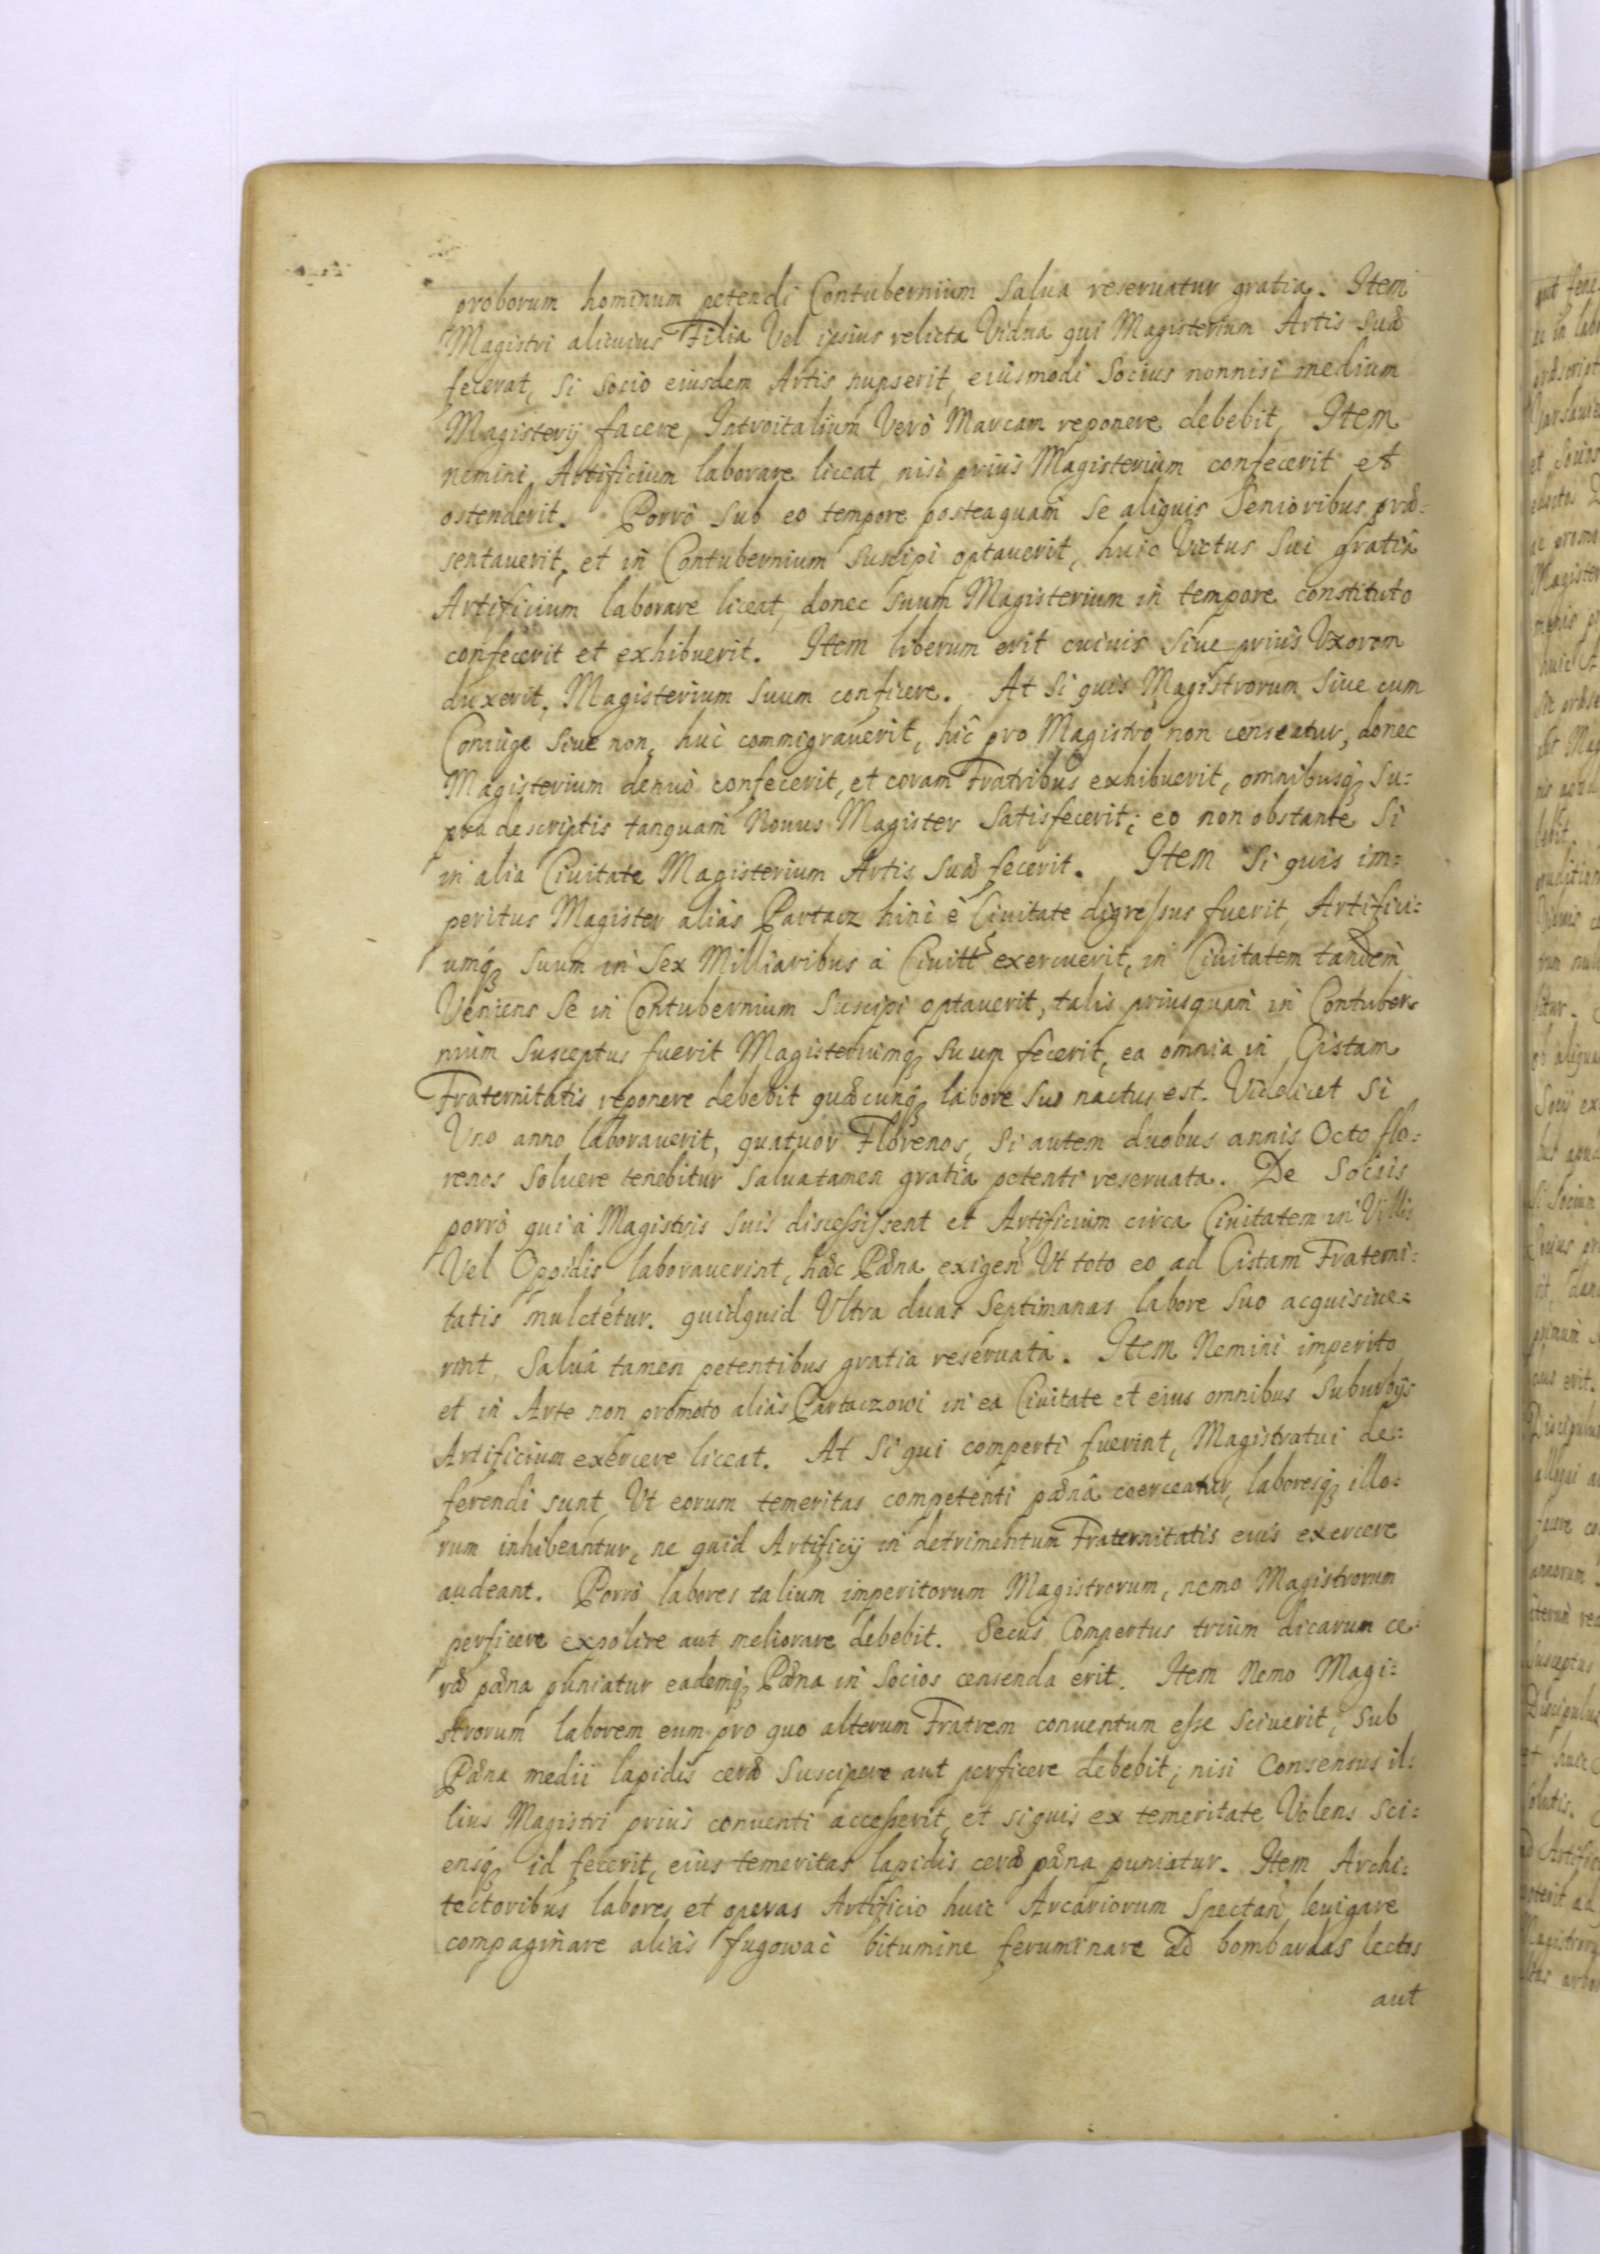 proborum hominum petendi Contubernium salua reseruatur gratia. Item
Magistri alicuius Filia Vel ipsius relicta Vidua qui Magisterium Artis suæ
fecerat, si socio eiusdem Artis nupserit, eiusmodi Socius nonnisi medium
Magisterij facere, Introitalium Verò Marcam reponere debebit, Item
nemini Artificium laborare liceat nisi prius Magisterium confecerit et
ostenderit. Porrò sub eo tempore posteaquam se aliquis Senioribus præ:
sentauerit, et in Contubernium suscipi optauerit, huic Victus sui gratiâ
Artificium laborare liceat, donec suum Magisterium in tempore constituto
confecerit et exhibuerit. Item liberum erit cuiuis siue prius Vxorem
duxerit, Magisterium suum conficere. At si quis Magistrorum siue cum
Coniuge siue non, huc commigrauerit, hic pro Magistro non censeatur, donec
Magisterium denuò confecerit, et coram Fratribus exhibuerit, omnibusq; su:
pra descriptis tanquam Nouus Magister satisfecerit; eo non obstante si
in alia Ciuitate Magisterium Artis suæ fecerit. Item si quis im:
peritus Magister aliàs Partacz hinc è Ciuitate digressus fuerit, Artifici:
umq; suum in sex Milliaribus à Ciuitte exercuerit, in Ciuitatem tandem
Veniens se in Contubernium suscipi optauerit, talis priusquam in Contuber:
nium susceptus fuerit Magisteriumq; suum fecerit, ea omnia in Cistam
Fraternitatis reponere debebit quæcunq; labore suo nactus est. Videlicet si
Vno anno laborauerit, quatuor Florenos, si autem duobus annis Octo flo:
renos soluere tenebitur salua tamen gratia petenti reseruata. De Socijs
porrò qui à Magistris suis discessissent et Artificium circa Ciuitatem in Villis
Vel Oppidis laborauerint, hæc Pæna exigen Vt toto eo ad Cistam Fraterni:
tatis mulctetur. quidquid Vltra duas septimanas labore suo acquisiue:
rint, saluâ tamen petentibus gratia reseruatâ. Item Nemini imperito
et in Arte non promoto aliàs Partaczowi in ea Ciuitate et eius omnibus suburbijs
Artificium exercere liceat. At si qui comperti fuerint, Magistratui de:
ferendi sunt, Vt eorum temeritas competenti pænâ coerceatur, laboresq; illo:
rum inhibeantur, ne quid Artificij in detrimentum Fraternitatis eius exercere
audeant. Porrò labores talium imperitorum Magistrorum, nemo Magistrorum
perficere expolire aut meliorare debebit. Secus Compertus trium dicarum ce:
ræ pæna puniatur eademq; Pæna in Socios censenda erit. Item Nemo Magi:
strorum laborem eum pro quo alterum Fratrem conuentum esse sciuerit, sub
Pæna medii lapidis ceræ suscipere aut perficere debebit; nisi Consensus il:
lius Magistri prius conuenti accesserit, et si quis ex temeritate Volens sci:
ensq; id fecerit, eius temeritas lapidis ceræ pæna puniatur. Item Archi:
tectoribus labores et operas Artificio huic Arcariorum spectan leuigare
compaginare aliàs fugowac bitumine feruminare ad bombardas lectos
aut